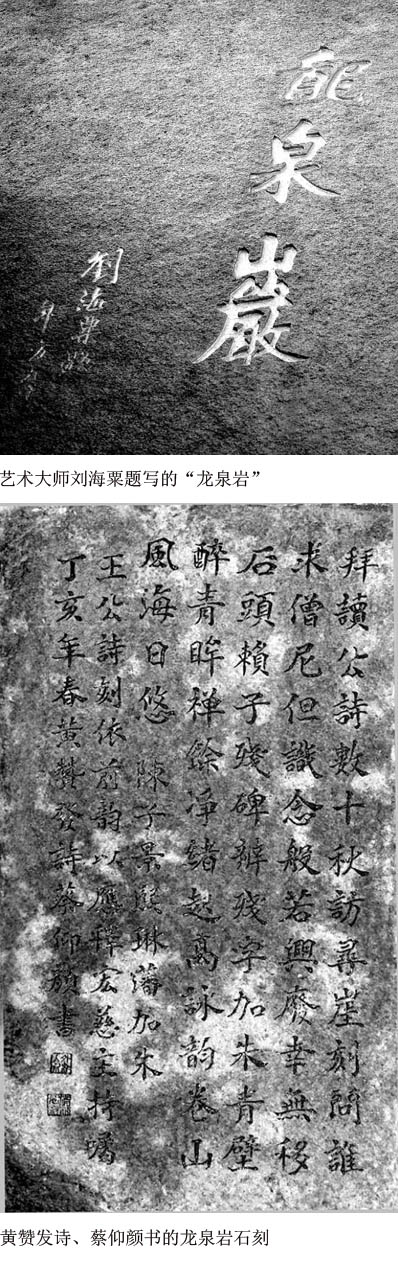 龍泉巖
劉海粟題
艺术大师刘海粟题写的“龙泉岩”
拜讀公詩數十秋訪尋崖刻問誰
求僧尼但識念般若興廢幸無移
石頭賴子殘碑辨殘字加朱青壁
醉青眸禅餘淨緒起高詠韵卷山
風海日悠 陳子景熙琳藩加朱
王公詩刻依前韵以應釋宏慈主持囑
丁亥年春黃贊發詩蔡仰顔書
黄赞发诗、蔡仰颜书的龙泉岩石刻